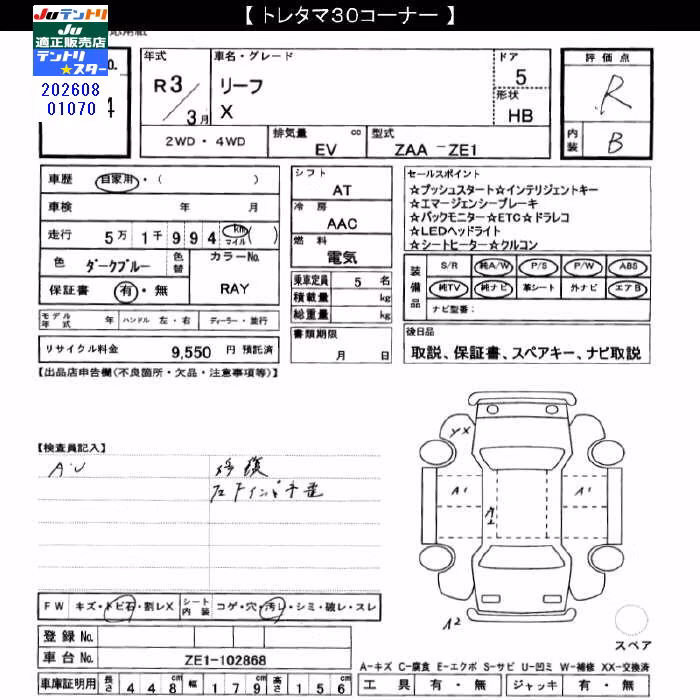 【 トレタマ30コーナー 】
JUテントリ
JU
適正販売店
テントリ
★スター
202608
01070
年式
R3
3月
車名・グレード
リーフ
X
ドア
5
形状
HB
評価点
R
内装
B
2WD・4WD
排気量
cc
EV
型式
ZAA -ZE1
車歴
自家用・( )
車検
年 月
走行
5万 1千 9 9 4 km マイル ( )
色
ダークブルー
色替
カラーNo.
RAY
保証書
有・無
シフト
AT
冷房
AAC
燃料
電気
乗車定員 5 名
積載量 kg
総重量 kg
書類期限
月 日
セールスポイント
☆プッシュスタート☆インテリジェントキー
☆エマージェンシーブレーキ
☆バックモニター☆ETC☆ドラレコ
☆LEDヘッドライト
☆シートヒーター☆クルコン
装備品
S/R 純A/W P/S P/W ABS
純TV 純ナビ 革シート 外ナビ エアB
ナビ型番:
後日品
取説、保証書、スペアキー、ナビ取説
モデル年式 年 ハンドル 左・右 ディーラー・並行
リサイクル料金 9,550 円 預託済
【出品店申告欄(不良箇所・欠品・注意事項等)】
【検査員記入】
A・U
修復
YX
A1
A1
A2
FW キズ・トビ石・割レX シート内装 コゲ・穴・汚レ・シミ・破レ・スレ
登録 No.
車台 No. ZE1-102868
スペア
A-キズ C-腐食 E-エクボ S-サビ U-凹ミ W-補修 XX-交換済
車庫証明用 長さ 4 4 8 幅 1 7 9 高さ 1 5 6
工具 有・無 ジャッキ 有・無